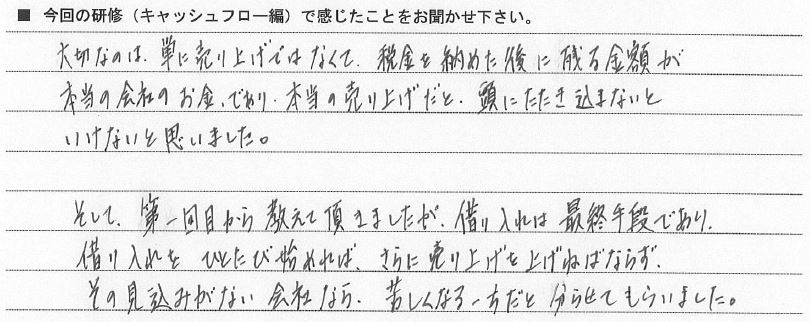 ■ 今回の研修（キャッシュフロー編）で感じたことをお聞かせ下さい。
大切なのは、単に売り上げではなくて、税金を納めた後に残る金額が
本当の会社のお金、であり、本当の売り上げだと、頭にたたき込まないと
いけないと思いました。
そして、第一回目から教えて頂きましたが、借り入れは最終手段であり、
借り入れをひとたび始めれば、さらに売り上げを上げねばならず、
その見込みがない会社なら、苦しくなる一方だと分らせてもらいました。